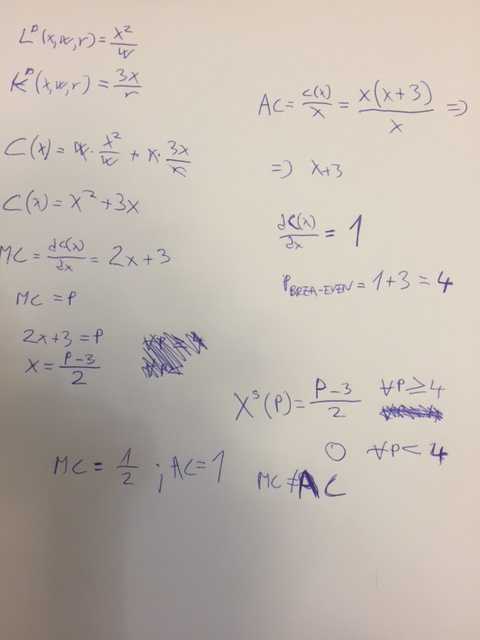 L^D(x,w,r) = x²/w
K^D(x,w,r) = 3x/r
C(x) = w · x²/w + r · 3x/r
C(x) = x² + 3x
MC = dC(x)/dx = 2x + 3
MC = P
2x + 3 = P
x = (P-3)/2
MC = 1/2 ; AC = 1
AC = C(x)/x = x(x+3)/x =>
=> x+3
dC(x)/dx = 1
P_BREA-EVEN = 1 + 3 = 4
X^S(P) = (P-3)/2 ∀P ≥ 4
0 ∀P < 4
MC ≠ AC